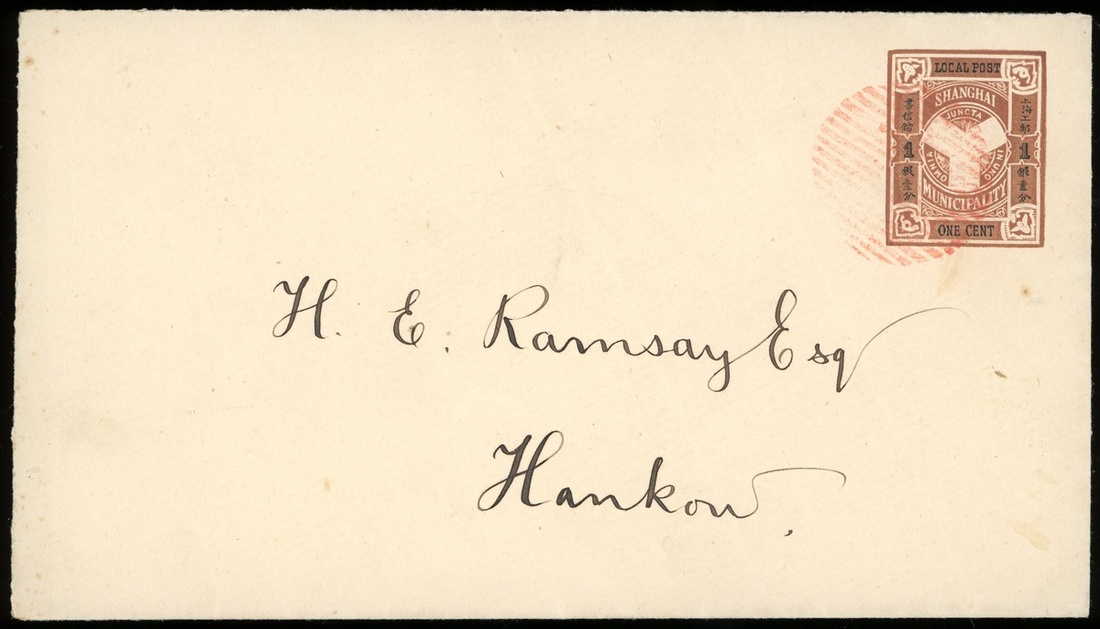 LOCAL POST
SHANGHAI
JUNCTA IN UNO OMNIA
書信館
1
銀壹分
上海工部
1
銀壹分
MUNICIPALITY
ONE CENT
H. E. Ramsay Esq
Hankow.